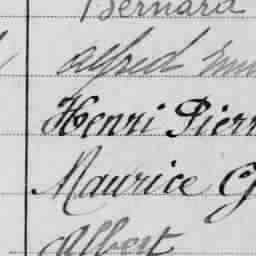 Bernard
Alfred
Henri Pierr
Maurice G
Albert